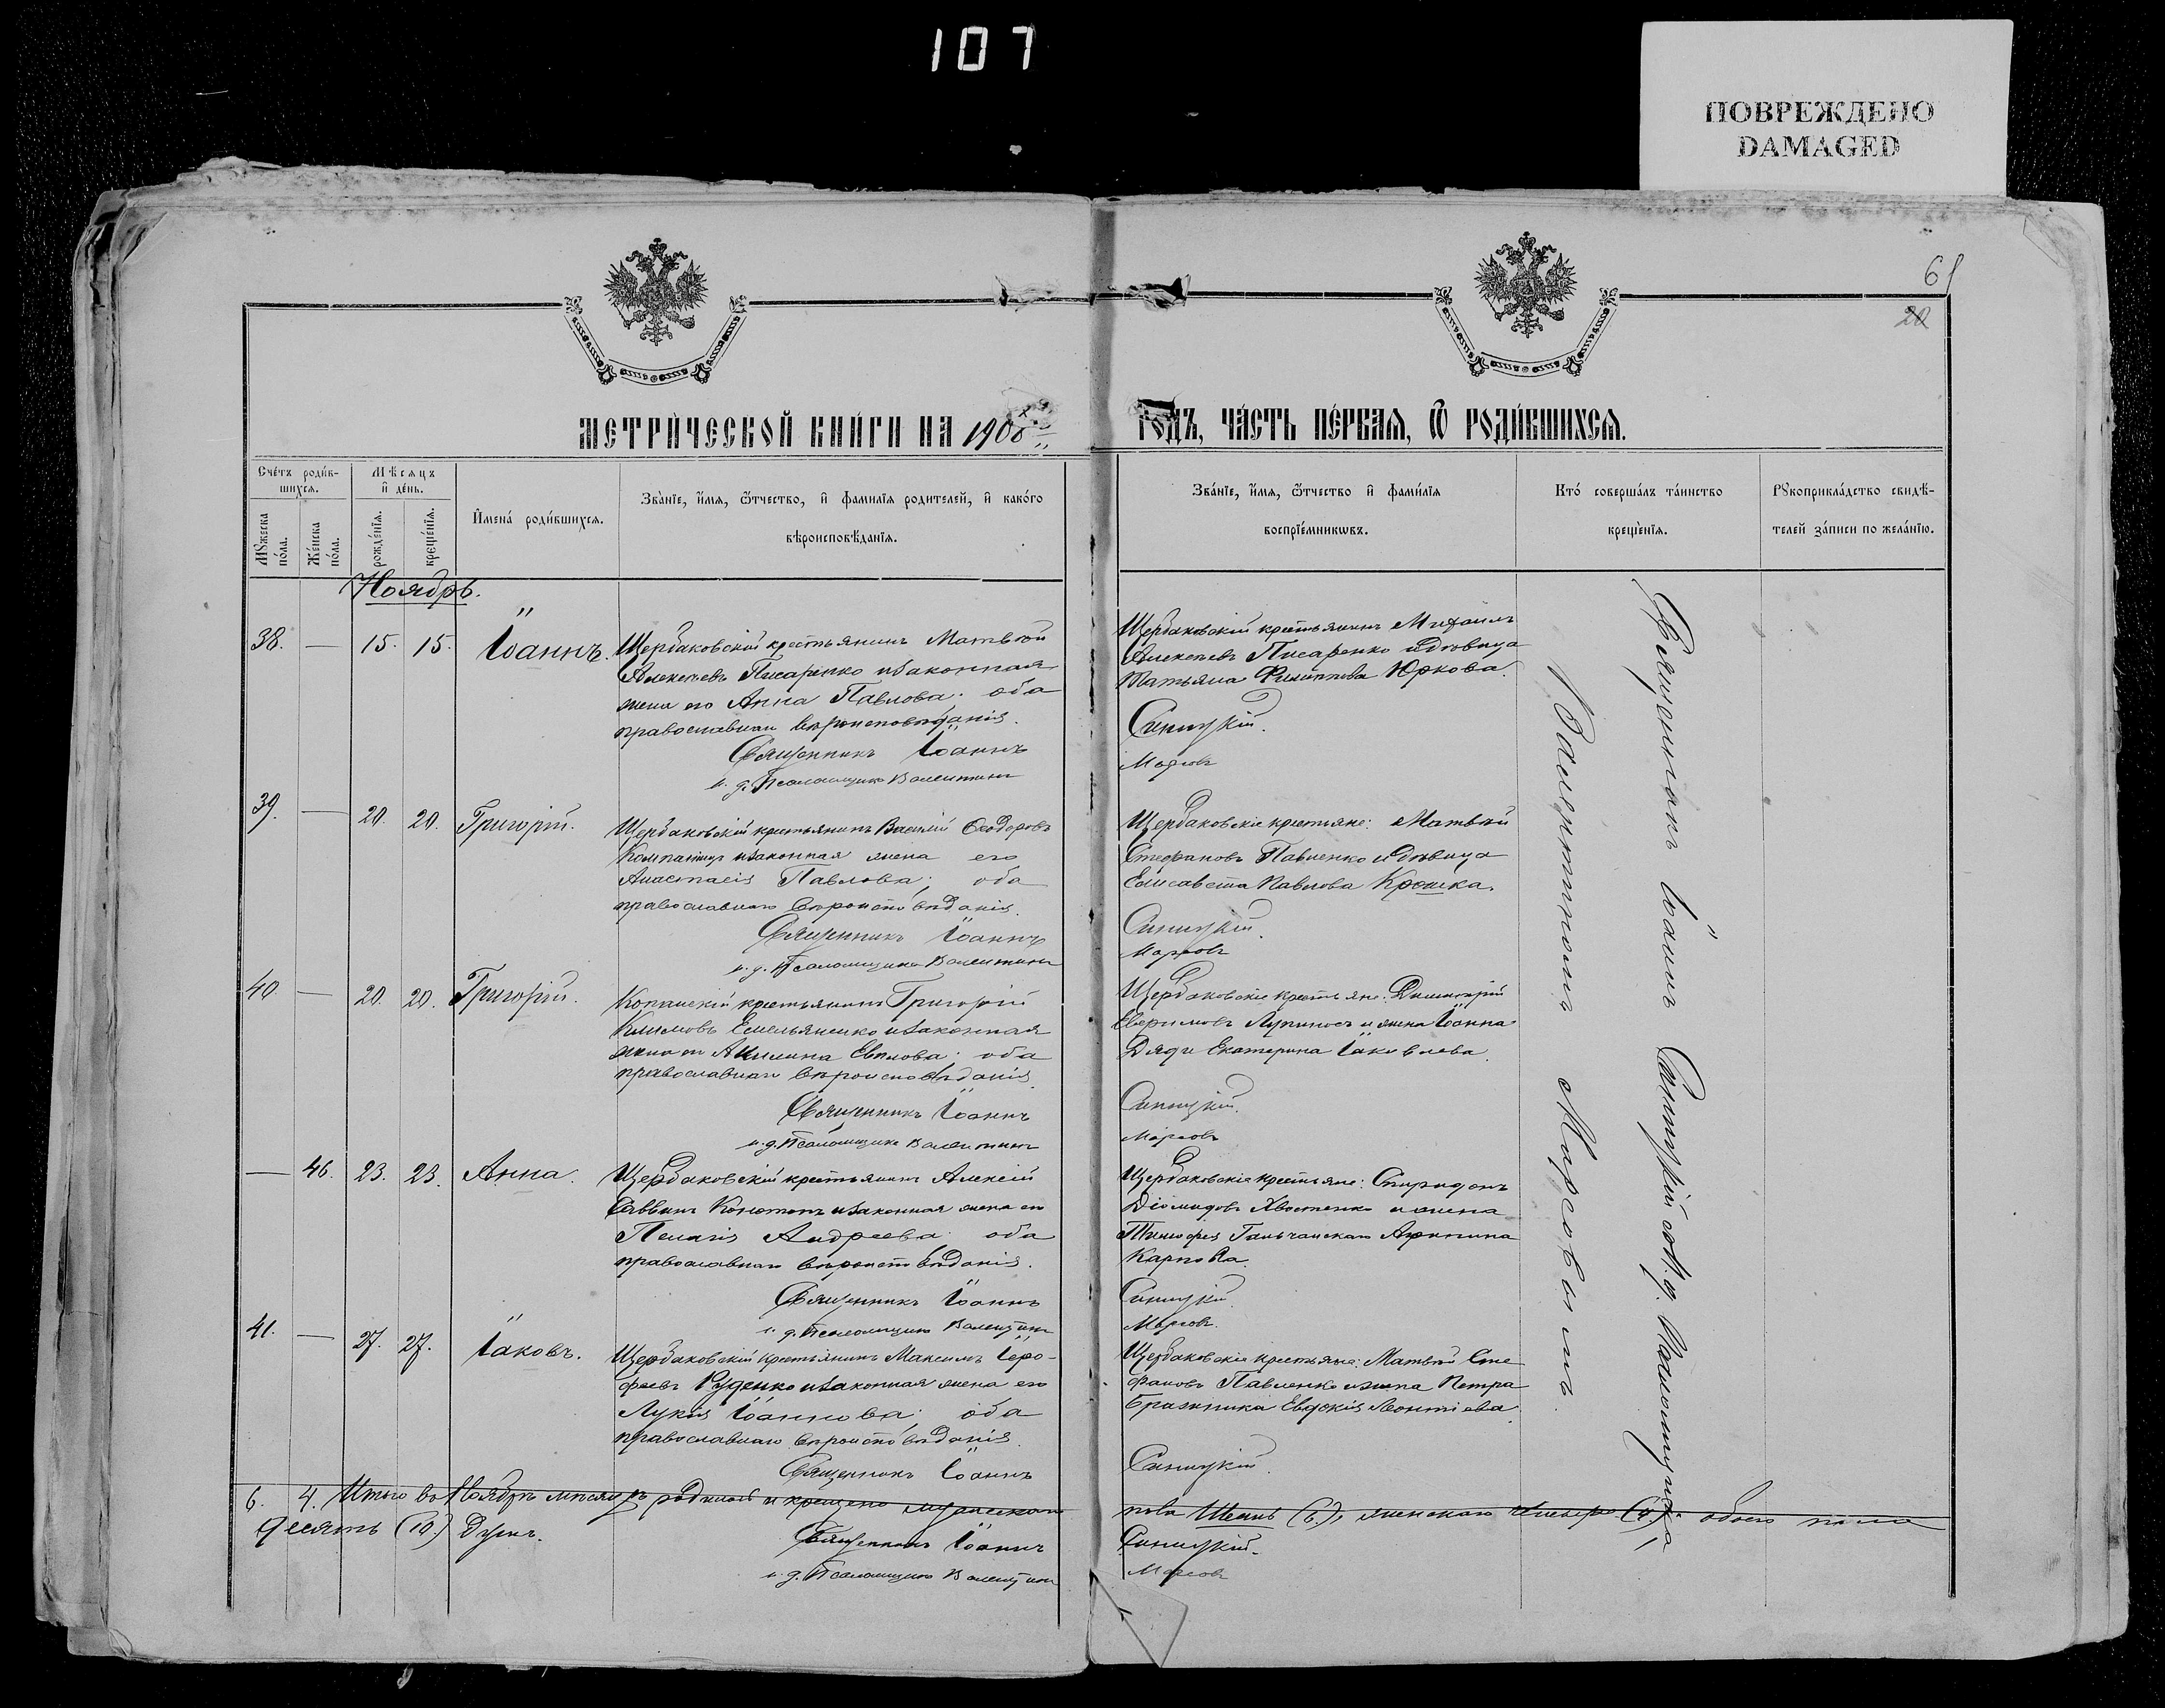 107
ПОВРЕЖДЕНО
DAMAGED
61
20
МЕТРИ́ЧЕСКОЙ КНИ́ГИ НА 1908
ГОДЪ, ЧА́СТЬ ПЕ́РВАѦ, Ѿ РОДИ́ВШИХСѦ.
Сче́тъ роди́в-
шихсѧ.
Мѣсѧцъ
и де́нь.
Имена́ роди́вшихсѧ.
Зва́нїе, и́мѧ, ѻ́тчество, и фами́лїѧ роди́телей, и како́го
вѣроисповѣ́данїѧ.
Мꙋжеска по́ла.
Же́нска по́ла.
рожде́нїѧ.
креще́нїѧ.
Зва́нїе, и́мѧ, ѻ́тчество и фами́лїѧ
воспрїе́мникѡвъ.
Кто́ соверша́лъ та́инство
креще́нїѧ.
Рꙋкоприкла́дство свидѣ́-
телей за́писи по жела́нїю.
Ноябрь.
38. — 15. 15. Іоаннъ.
Щербаковскій крестьянинъ Матвѣй
Алексѣевъ Писаренко и законная
жена его Анна Павлова; оба
православнаго вѣроисповѣданія.
Священникъ Іоаннъ
и. д. Псаломщика Валентинъ
Щербаковскій крестьянинъ Михаилъ
Алексѣевъ Писаренко и дѣвица
Татьяна Филиппова Юркова.
Синицкій.
Марковъ
39. — 20. 20. Григорій.
Щербаковскій крестьянинъ Василій Ѳеодоровъ
и законная жена его
Анастасія Павлова; оба
православнаго вѣроисповѣданія.
Священникъ Іоаннъ
и. д. Псаломщика Валентинъ
Щербаковскіе крестьяне: Матвѣй
Стефановъ Павленко и дѣвица
Елисавета Павлова Крошка.
Синицкій.
Марковъ
40. — 20. 20. Григорій.
Копанскій крестьянинъ Григорій
Климовъ Емельяненко и законная
жена его Акилина; оба
православнаго вѣроисповѣданія.
Священникъ Іоаннъ
и. д. Псаломщика Валентинъ
Щербаковскіе крестьяне: Димитрій
и жена Іоанна
Екатерина Іаковлева.
Синицкій.
Марковъ
— 46. 23. 23. Анна.
Щербаковскій крестьянинъ Алексій
Саввинъ и законная жена его
Пелагія Андреева; оба
православнаго вѣроисповѣданія.
Священникъ Іоаннъ
и. д. Псаломщика Валентинъ
Щербаковскіе крестьяне: Спиридонъ
Діомидовъ Хвостенко и жена
Тимофея Агрипина
Карпова.
Синицкій.
Марковъ.
41. — 27. 27. Іаковъ.
Щербаковскій крестьянинъ Максимъ Іеро-
феевъ Руденко и законная жена его
Лукія Іоаннова; оба
православнаго вѣроисповѣданія.
Священникъ Іоаннъ
Щербаковскіе крестьяне: Матвѣй Сте
фановъ Павленко и жена Петра
Бражника Евдокія Леонтіева.
Синицкій.
6. 4. Итого въ Ноябрѣ мѣсяцѣ родилось и крещено мужескаго
пола Шесть (6.), женскаго четыре (4.); обоего пола
десять (10.) душъ.
Священникъ Іоаннъ
и. д. Псаломщика Валентинъ
Синицкій.
Марковъ
Священникъ Іоаннъ Синицкій съ И. д. Псаломщика
Валентиномъ Марковымъ.